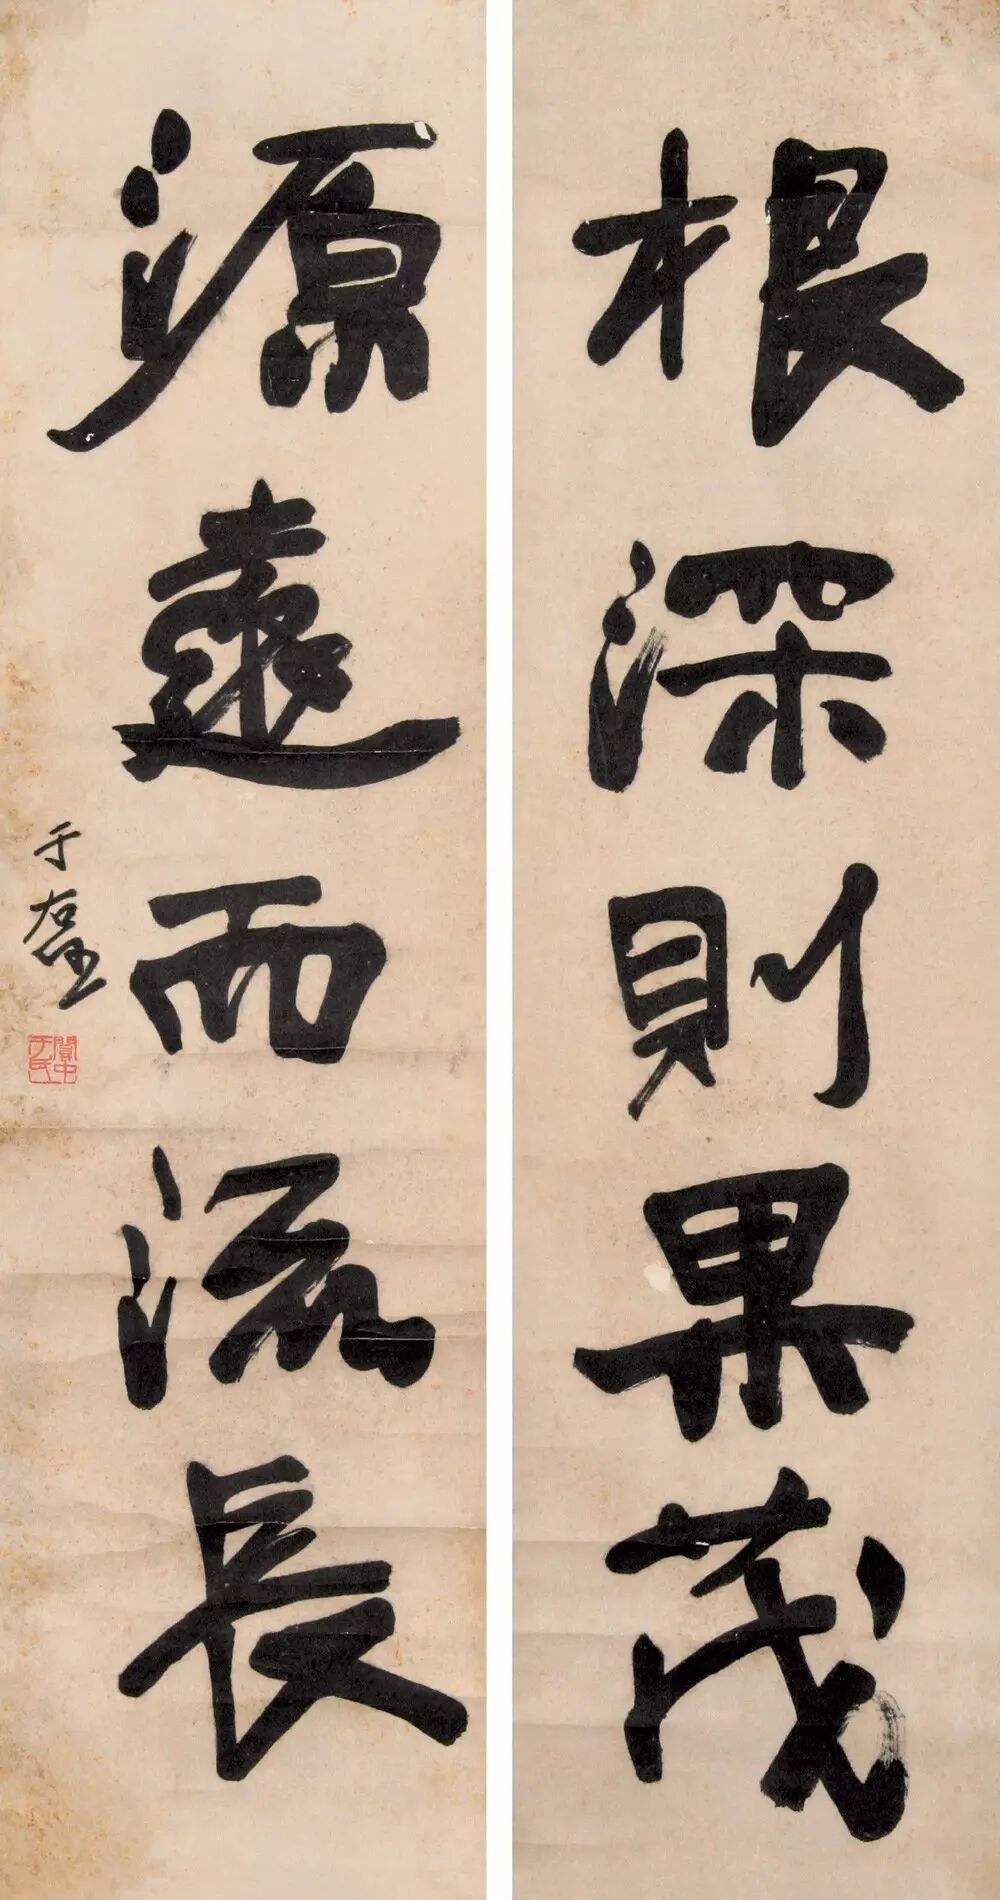 根深則果茂
源遠而流長
于右任
關中于氏